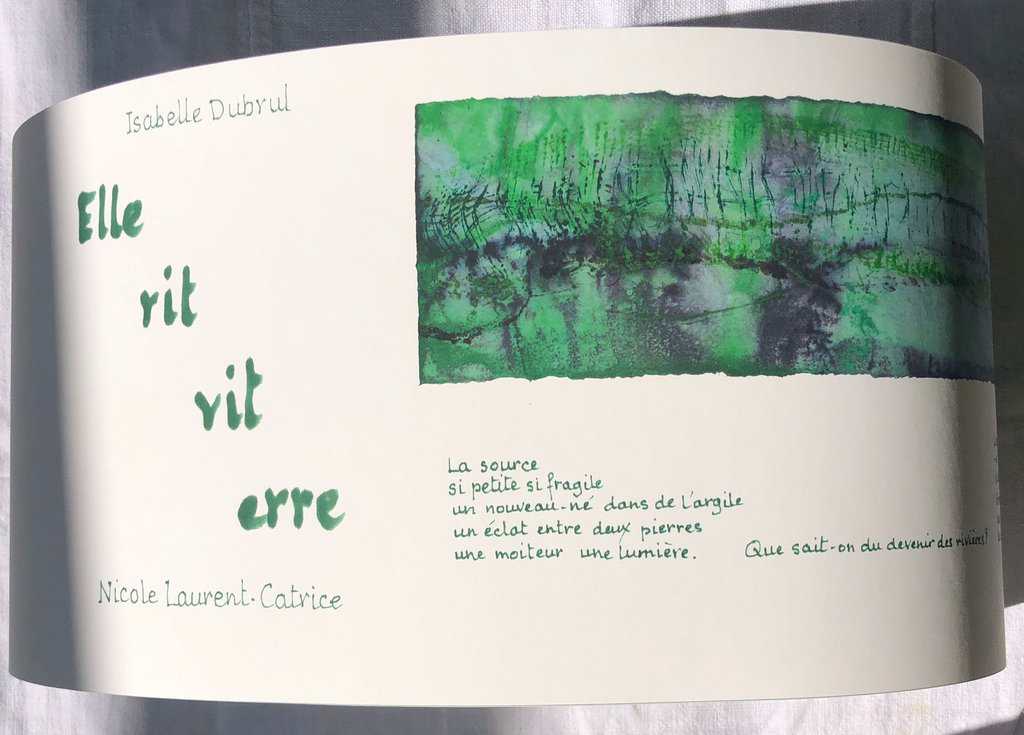 Isabelle Dubrul
Elle
rit
vit
erre
Nicole Laurent-Catrice
La source
si petite si fragile
un nouveau-né dans de l'argile
un éclat entre deux pierres
une moiteur une lumière.
Que sait-on du devenir des rivières?